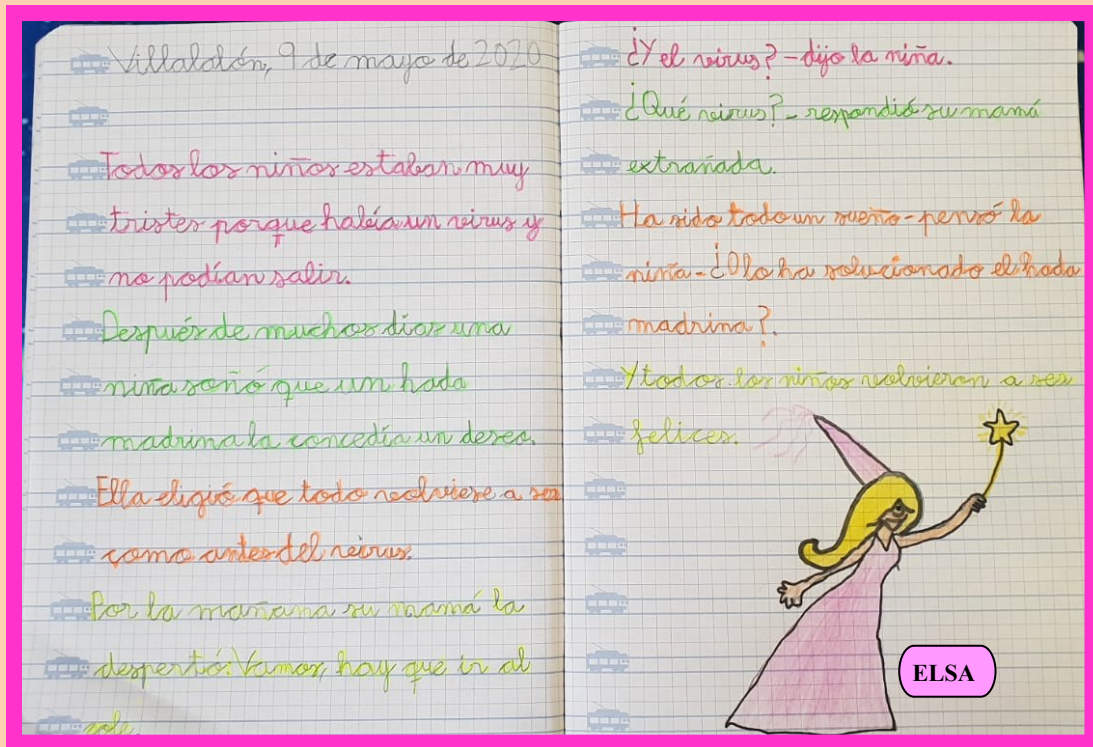 Villalobón, 9 de mayo de 2020
Todos los niños estaban muy
tristes porque había un virus y
no podían salir.
Después de muchos días una
niña soñó que un hada
madrina la concedía un deseo.
Ella eligió que todo volviese a ser
como antes del virus.
Por la mañana su mamá la
despertó: Vamos, hay que ir al
cole.
¿Y el virus? - dijo la niña.
¿Qué virus? - respondió su mamá
extrañada.
Ha sido todo un sueño - pensó la
niña - ¿O lo ha solucionado el hada
madrina?.
Y todos los niños volvieron a ser
felices.
ELSA